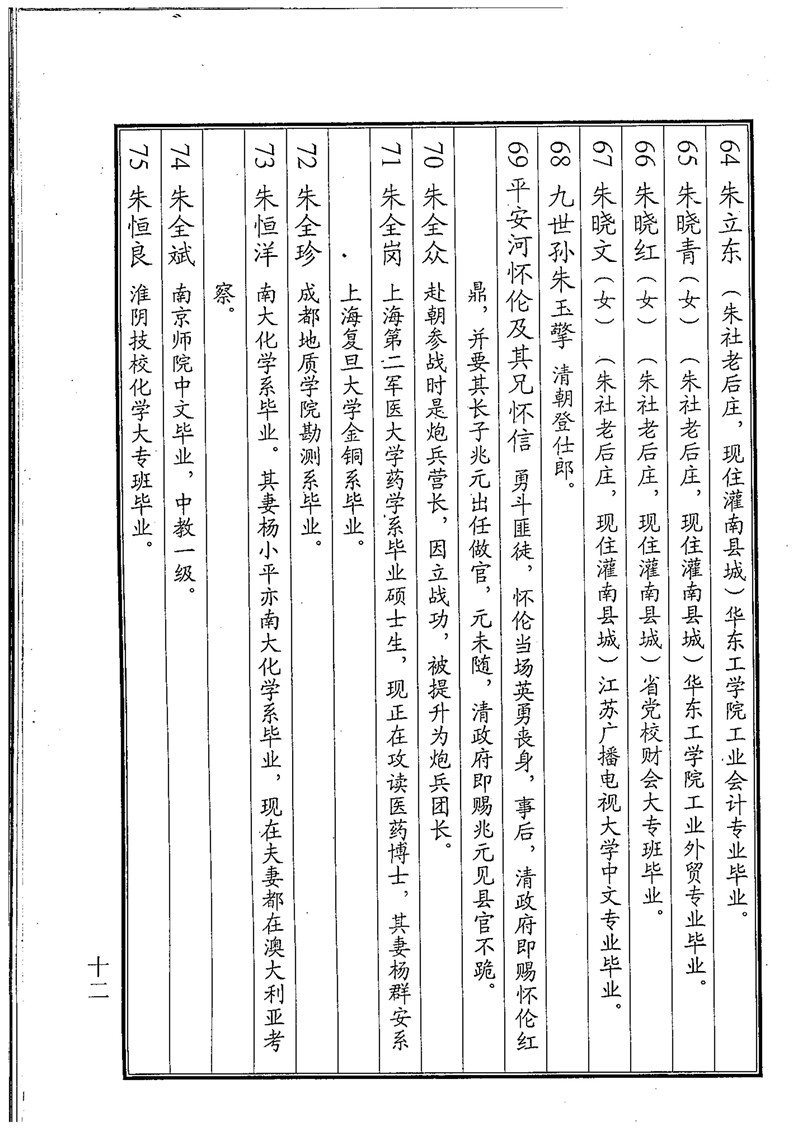 64 朱立东 （朱社老后庄，现住灌南县城）华东工学院工业会计专业毕业。
65 朱晓青（女） （朱社老后庄，现住灌南县城）华东工学院工业外贸专业毕业。
66 朱晓红（女） （朱社老后庄，现住灌南县城）省党校财会大专班毕业。
67 朱晓文（女） （朱社老后庄，现住灌南县城）江苏广播电视大学中文专业毕业。
68 九世孙朱玉擎 清朝登仕郎。
69 平安河怀伦及其兄怀信 勇斗匪徒，怀伦当场英勇丧身，事后，清政府即赐怀伦红
鼎，并要其长子兆元出任做官，元未随，清政府即赐兆元见县官不跪。
70 朱全众 赴朝参战时是炮兵营长，因立战功，被提升为炮兵团长。
71 朱全岗 上海第二军医大学药学系毕业硕士生，现正在攻读医药博士，其妻杨群安系
上海复旦大学金铜系毕业。
72 朱全珍 成都地质学院勘测系毕业。
73 朱恒洋 南大化学系毕业。其妻杨小平亦南大化学系毕业，现在夫妻都在澳大利亚考
察。
74 朱全斌 南京师院中文毕业，中教一级。
75 朱恒良 淮阴技校化学大专班毕业。
十二